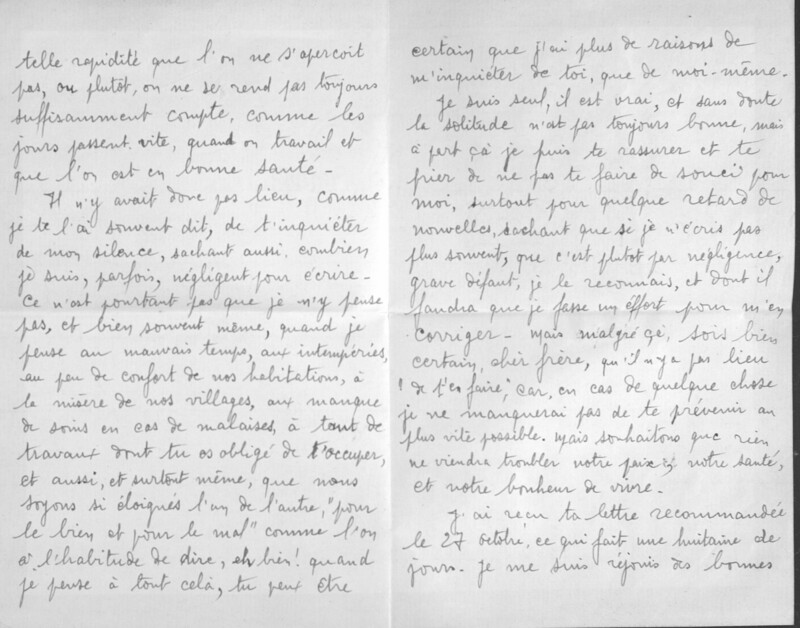 telle rapidité que l'on ne s'aperçoit
pas, ou plutôt, on ne se rend pas toujours
suffisamment compte, comme les
jours passent vite, quand on travail et
que l'on est en bonne santé -
Il n'y avait donc pas lieu, comme
je te l'ai souvent dit, de t'inquiéter
de mon silence, sachant aussi, combien
je suis, parfois, négligent pour écrire -
Ce n'est pourtant pas que je n'y pense
pas, et bien souvent même, quand je
pense au mauvais temps, aux intempéries,
au peu de confort de nos habitations, à
la misère de nos villages, aux manque
de soins en cas de malaises, à tout de
travaux dont tu es obligé de t'occuper,
et aussi, et surtout même, que nous
soyons si éloignés l'un de l'autre, "pour
le bien et pour le mal" comme l'on
a l'habitude de dire, eh bien! quand
je pense à tout celà, tu peux être
certain que j'ai plus de raisons de
m'inquiéter de toi, que de moi-même.
Je suis seul, il est vrai, et sans doute
la solitude n'est pas toujours bonne, mais
à part çà je puis te rassurer et te
prier de ne pas te faire de souci pour
moi, surtout pour quelque retard de
nouvelles, sachant que si je n'écris pas
plus souvent, que c'est plutot par négligence,
grave défaut, je le reconnais, et dont il
faudra que je fasse un effort pour m'en
corriger - Mais malgré çà, sois bien
certain, cher frère, qu'il n'y a pas lieu
"de t'en faire", car, en cas de quelque chose
je ne manquerai pas de te prévenir au
plus vite possible. Mais souhaitons que rien
ne viendra troubler notre paix, notre santé,
et notre bonheur de vivre -
J'ai reçu ta lettre recommandée
le 27 octobre, ce qui fait une huitaine de
jours - Je me suis réjouis des bonnes